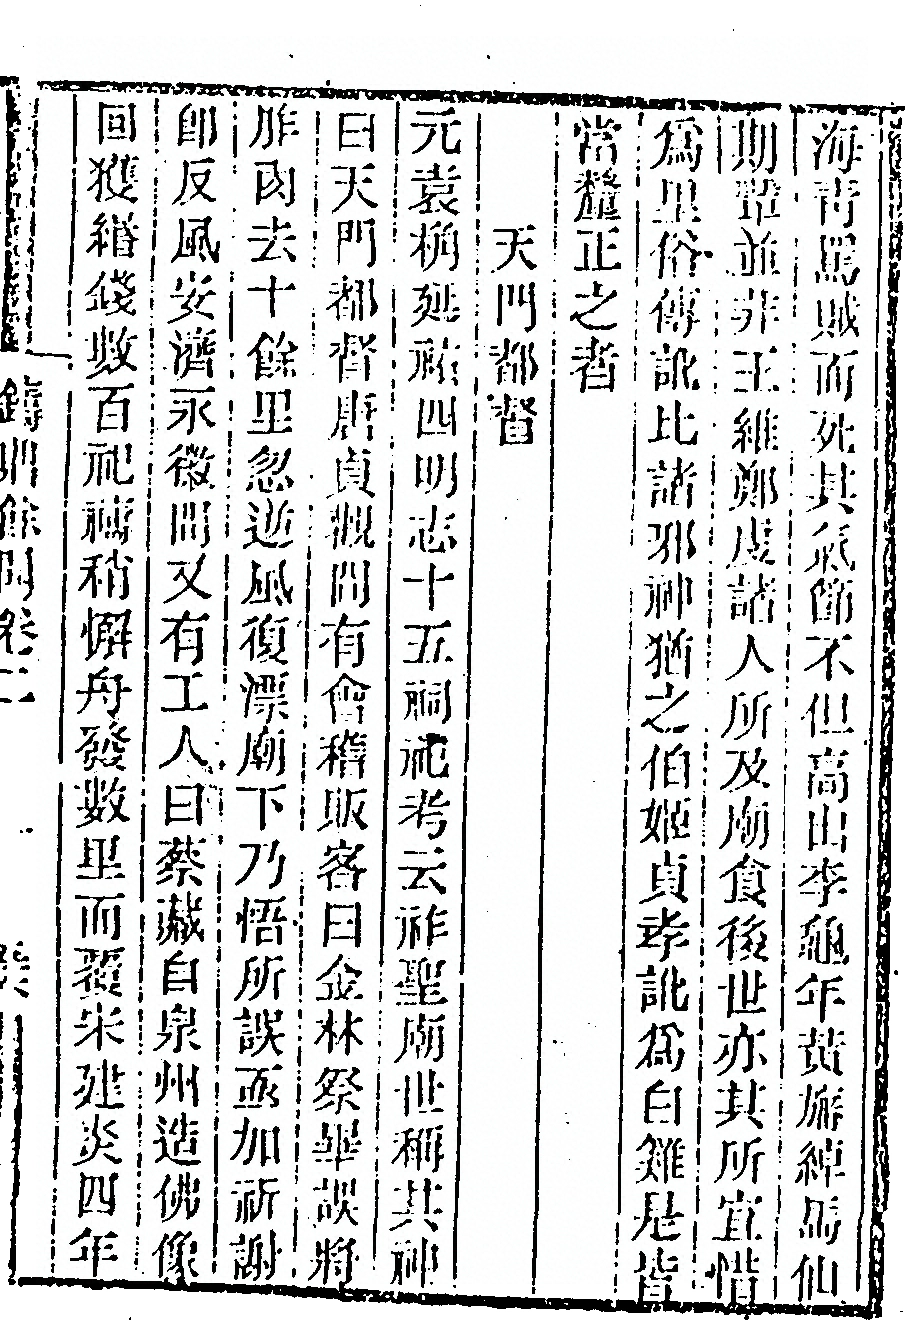 海青罵賊而死其氣節不但高出李龜年黃旛綽馬仙
期輩並非王維鄭虔諸人所及廟食後世亦其所宜惜
爲里俗傳訛比諸邪神猶之伯姬貞孝訛爲白雞是皆
當釐正之者
天門都督
元袁桷延祐四明志十五祠祀考云祚聖廟世稱其神
曰天門都督唐貞觀間有會稽販客曰金林祭畢誤將
胙肉去十餘里忽逆風復漂廟下乃悟所誤亟加祈謝
卽反風安濟永徽間又有工人曰蔡藏自泉州造佛像
回獲緡錢數百祀禱稍懈舟發數里而覆宋建炎四年
鑄鼎餘聞卷二